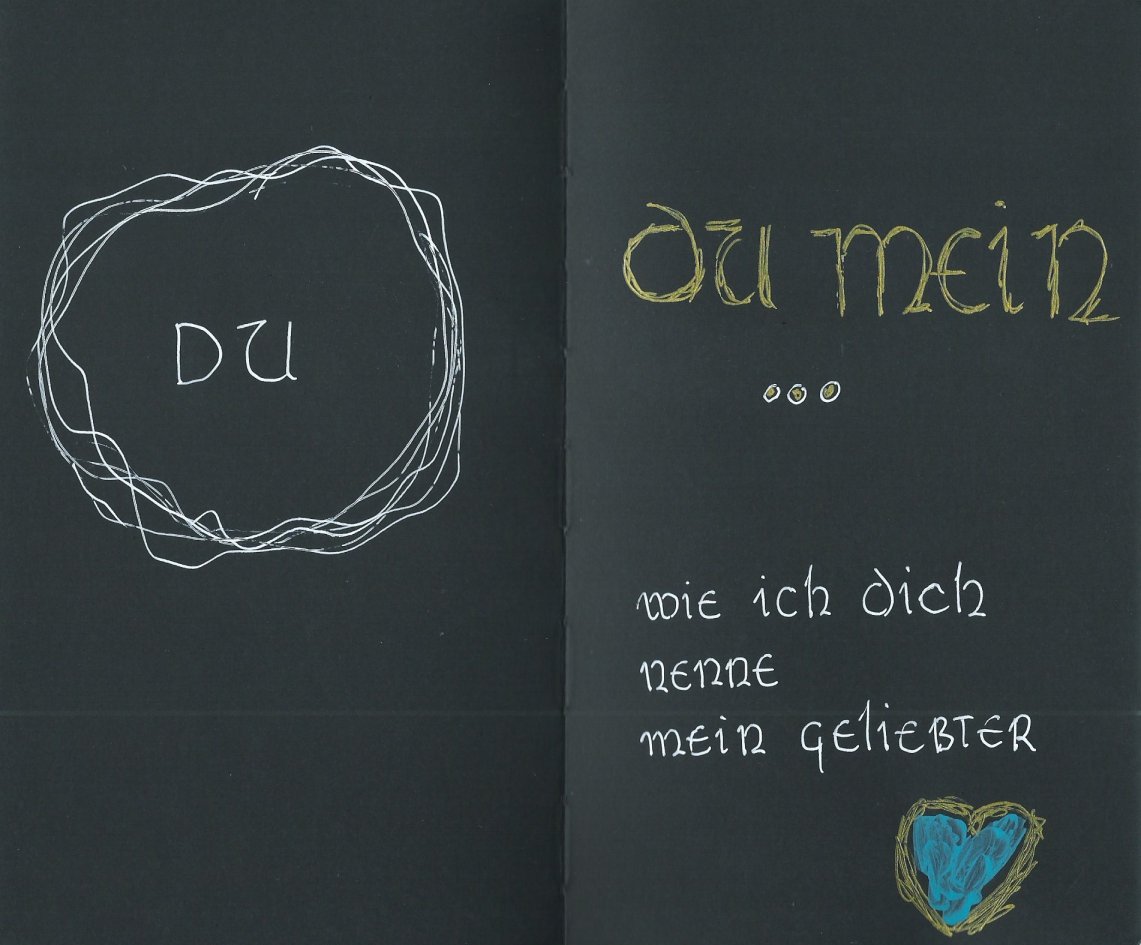 DU
DU MEIN
...
wie ich dich
nenne
mein geliebter